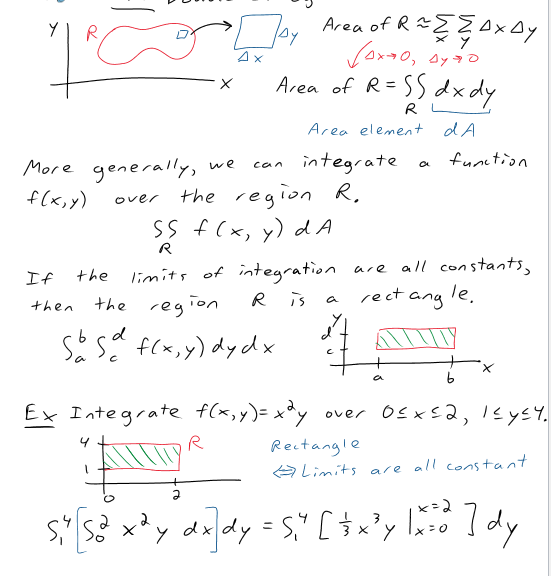 y R Δy Area of R ≈ Σ Σ Δx Δy
x y
Δx Δx→0, Δy→0
x Area of R = ∫∫ dx dy
R
Area element dA
More generally, we can integrate a function
f(x,y) over the region R.
∫∫ f(x, y) dA
R
If the limits of integration are all constants,
then the region R is a rectangle.
∫ₐᵇ ∫꜀ᵈ f(x,y) dy dx
y
d
c
a b x
Ex Integrate f(x,y)=x²y over 0≤x≤2, 1≤y≤4.
4 R Rectangle
1 ⇔ Limits are all constant
0 2
∫₁⁴ [∫₀² x² y dx] dy = ∫₁⁴ [⅓ x³ y |ₓ₌₀ˣ⁼² ] dy